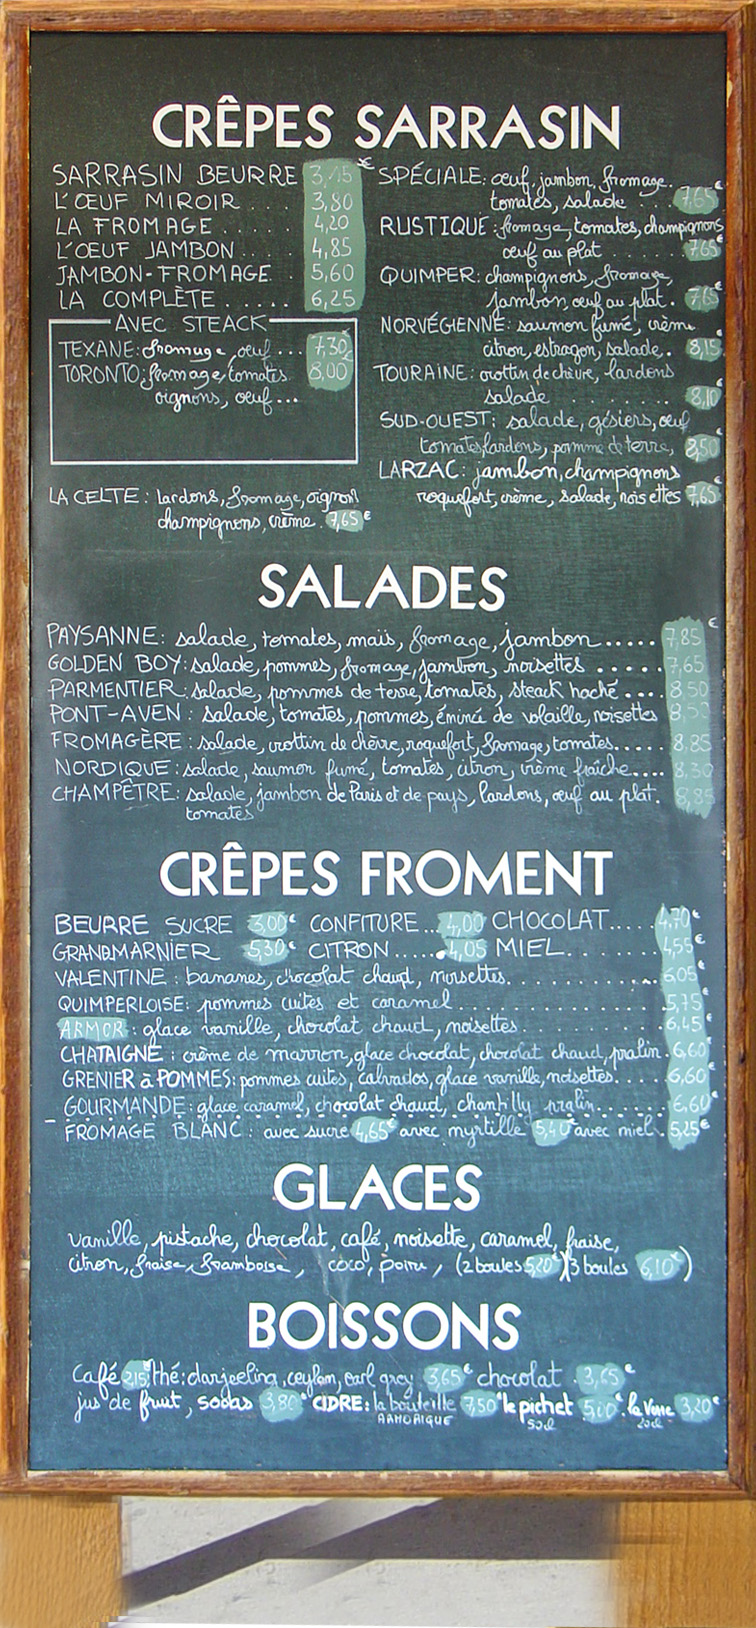 CRÊPES SARRASIN
SARRASIN BEURRE 3,15 €
L'ŒUF MIROIR ... 3,80
LA FROMAGE ..... 4,20
L'OEUF JAMBON ... 4,85
JAMBON-FROMAGE . 5,60
LA COMPLÈTE ..... 6,25
AVEC STEACK
TEXANE: fromage, oeuf .... 7,30
TORONTO: fromage, tomates 8,00
oignons, oeuf...
LA CELTE: lardons, fromage, oignon
champignons, crème. 7,65 €
SPÉCIALE: œuf, jambon, fromage.
tomates, salade .... 7,65 €
RUSTIQUE: fromage, tomates, champignons
œuf au plat ....... 7,65 €
QUIMPER: champignons, fromage,
jambon, œuf au plat. 7,65 €
NORVÉGIENNE: saumon fumé, crème
citron, estragon, salade. 8,15 €
TOURAINE: crottin de chèvre, lardons
salade ....... 8,10 €
SUD-OUEST: salade, gésiers, œuf
tomates, lardons, pomme de terre, 8,50 €
LARZAC: jambon, champignons
roquefort, crème, salade, noisettes 7,65 €
SALADES
PAYSANNE: salade, tomates, maïs, fromage, jambon..... 7,85 €
GOLDEN BOY: salade, pommes, fromage, jambon, noisettes ..... 7,65
PARMENTIER: salade, pommes de terre, tomates, steack haché .... 8 50
PONT-AVEN: salade, tomates, pommes, émincé de volaille, noisettes 8,50
FROMAGÈRE: salade, crottin de chèvre, roquefort, fromage, tomates..... 8,85
NORDIQUE: salade, saumon fumé, tomates, citron, crème fraîche.... 8,30
CHAMPÊTRE: salade, jambon de Paris et de pays, lardons, œuf au plat. 8,85
tomates
CRÊPES FROMENT
BEURRE SUCRE 3,00€ CONFITURE... 4,00 CHOCOLAT..... 4,70€
GRAND.MARNIER 5,30€ CITRON ..... 4,05 MIEL........ 4,55€
VALENTINE: bananes, chocolat chaud, noisettes............. 6.05€
QUIMPERLOISE: pommes cuites et caramel................ 5,75€
ARMOR: glace vanille, chocolat chaud, noisettes............ 6,45€
CHATAIGNE: crème de marron, glace chocolat, chocolat chaud, pralin. 6,60€
GRENIER à POMMES: pommes cuites, calvados, glace vanille, noisettes..... 6,60€
GOURMANDE: glace caramel, chocolat chaud, chantilly pralin...... 6,60€
FROMAGE BLANC: avec sucre 4,65€ avec myrtille 5,40€ avec miel. 5,25€
GLACES
vanille, pistache, chocolat, café, noisette, caramel, fraise,
citron, fraise, framboise, coco, poire, (2 boules 5,20€)(3 boules 6,10€)
BOISSONS
Café 2,15€ thé: darjeeling, ceylan, earl grey 3,65€ chocolat . 3,65€
jus de fruit, sodas 3,80€ CIDRE: la bouteille 7,50€ le pichet 5,10€. la Verre 3,20€
ARMORIQUE 50cl 20cl